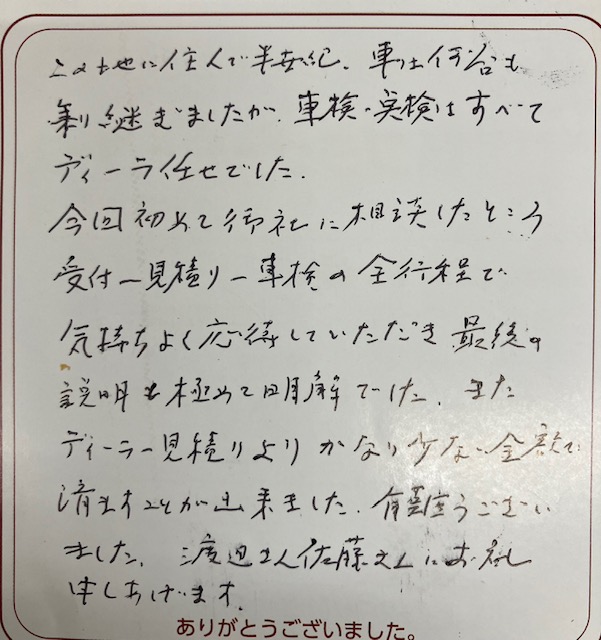 この地に住んで半世紀、車は何台も
乗り継ぎましたが、車検・点検はすべて
ディーラ任せでした.
今回初めて御社に相談したところ
受付ー見積りー車検の全行程で
気持ちよく応待していただき 最後の
説明も極めて明解でした. また
ディーラー見積りよりかなり少ない金額で
済ますことが出来ました. 有難うござい
ました. 渡辺さん佐藤さんにお礼
申しあげます.
ありがとうございました。